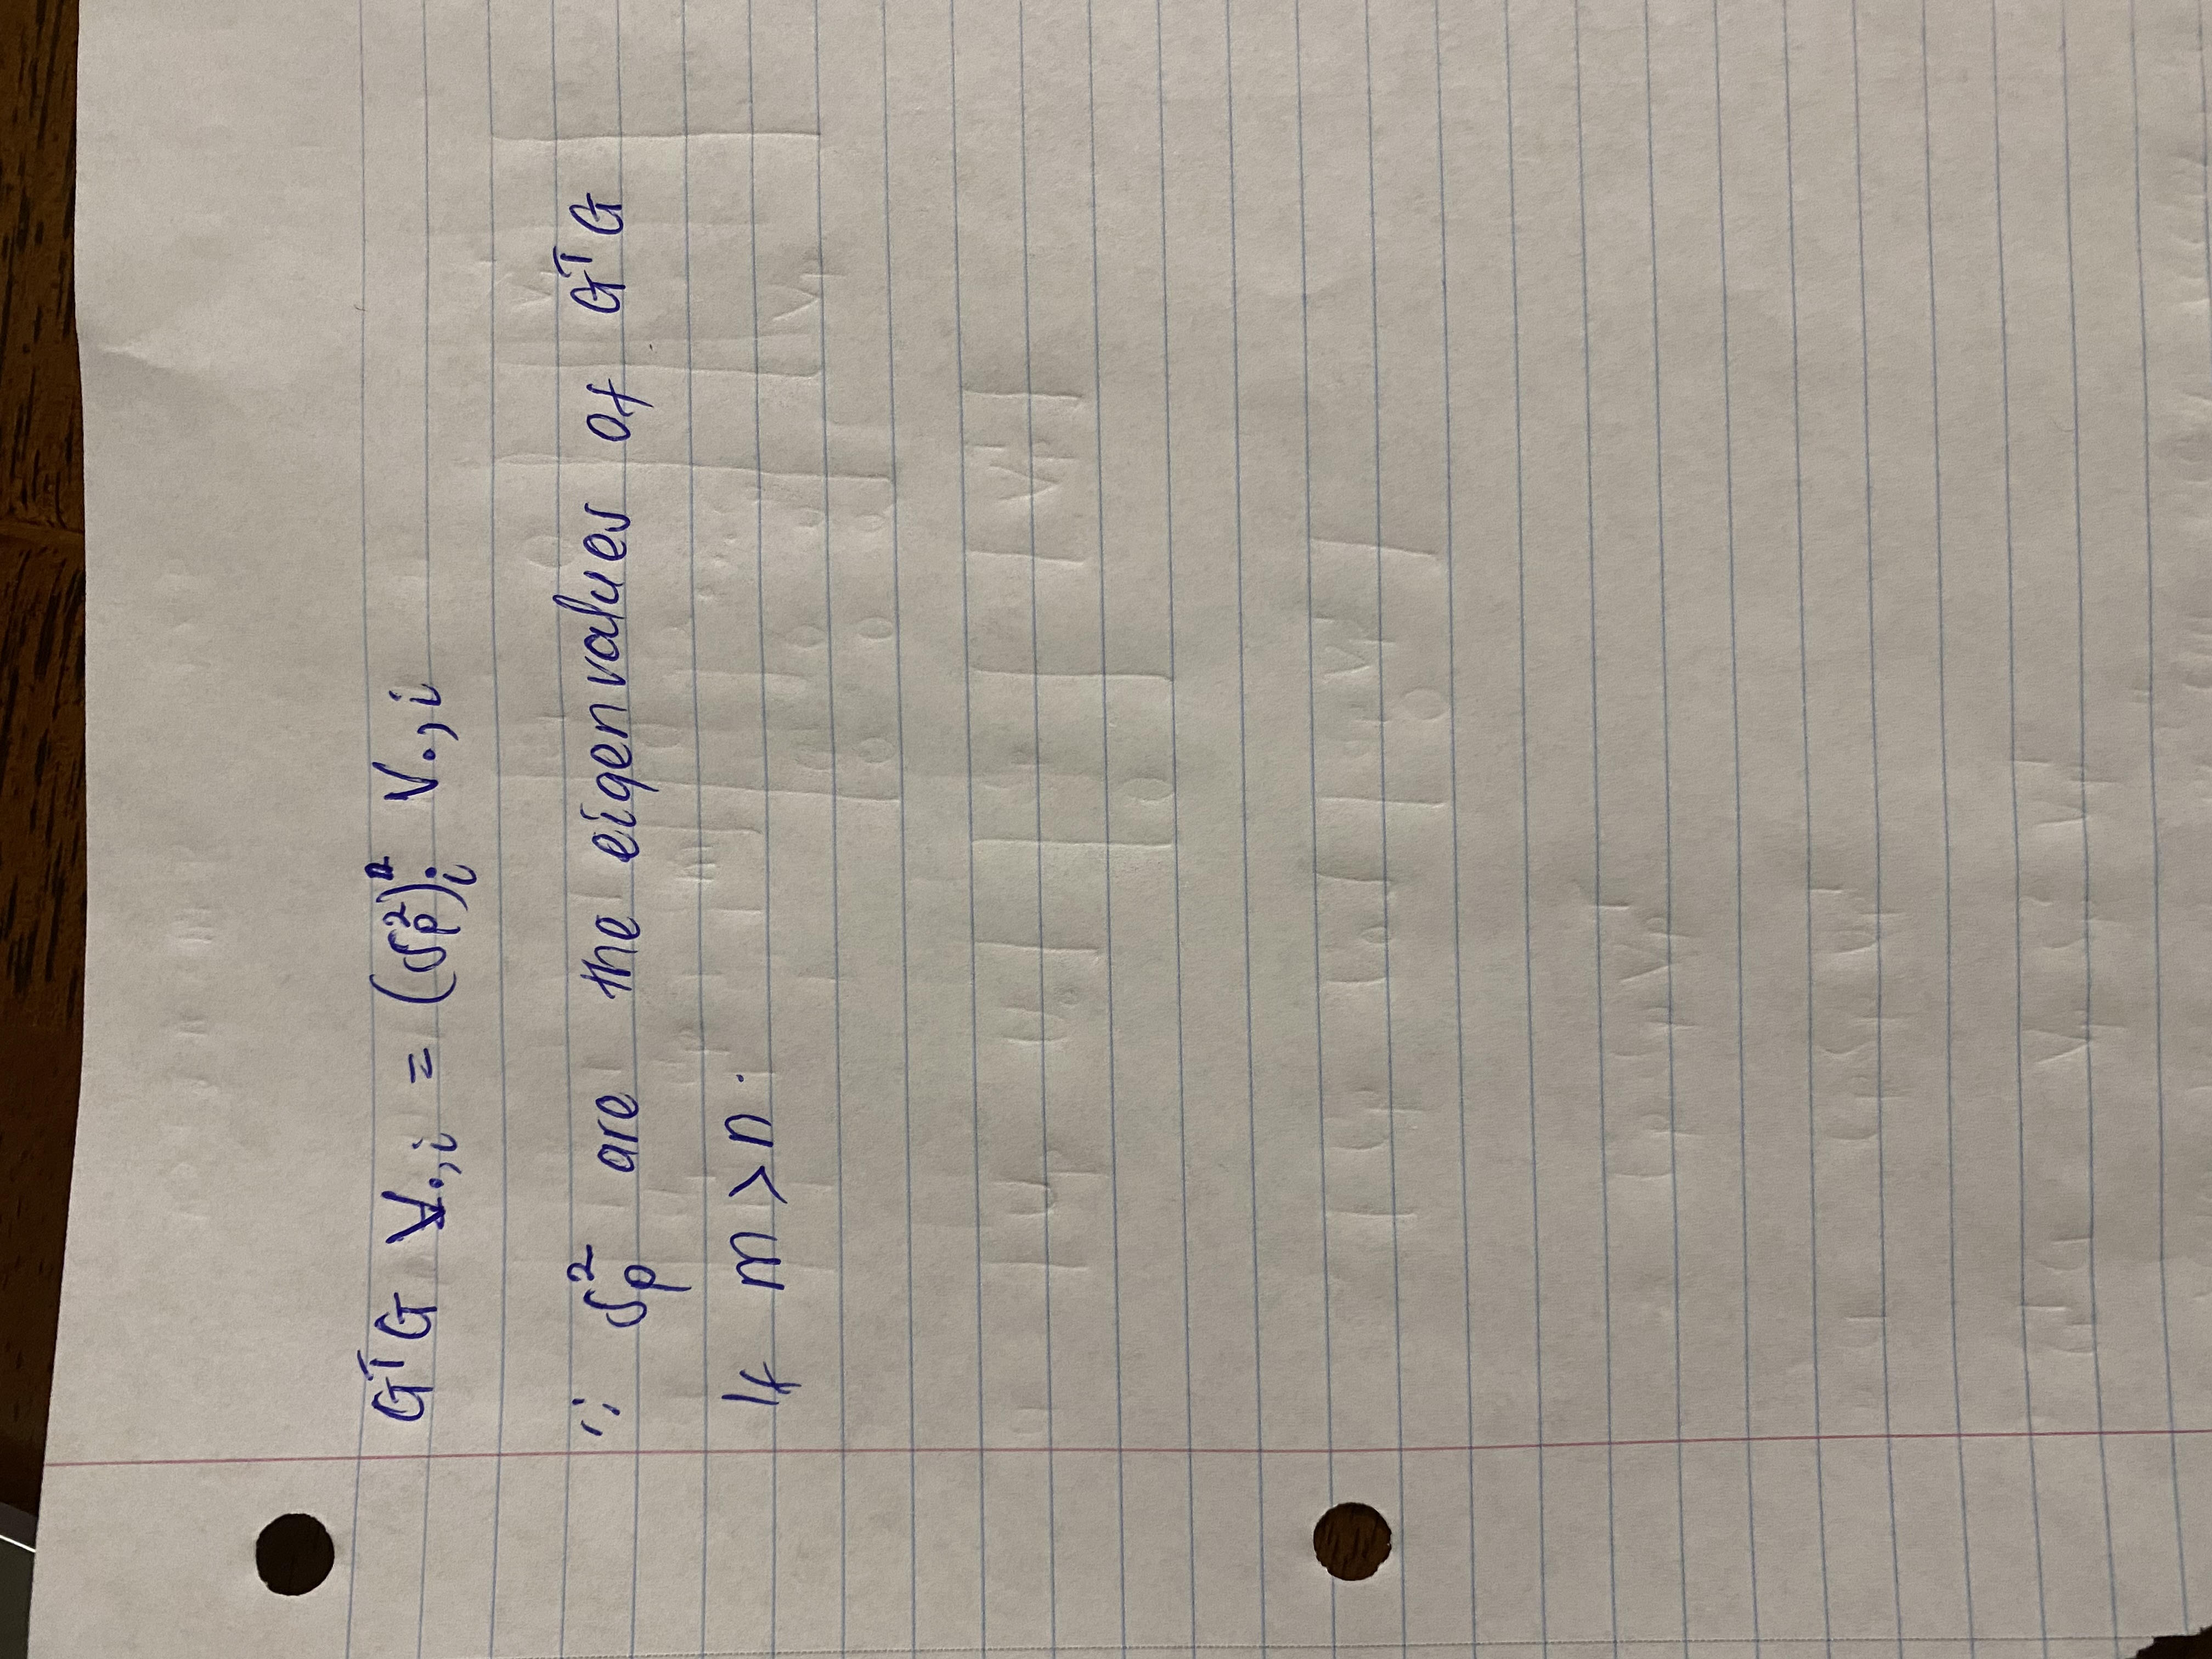 GᵀG V.,i = (Sₚ²)ᵢⁿ V.,i
∵ Sₚ² are the eigenvalues of GᵀG
If m > n .